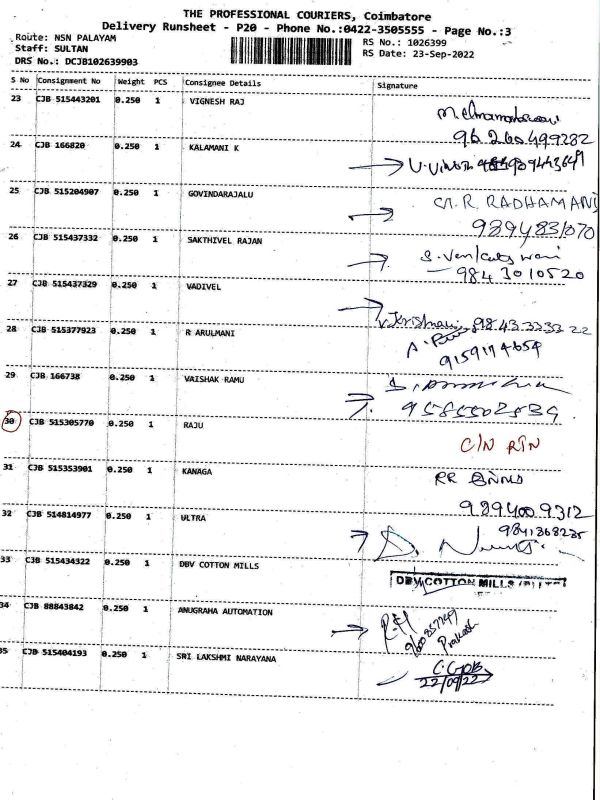 THE PROFESSIONAL COURIERS, Coimbatore
Delivery Runsheet - P20 - Phone No.:0422-3505555 - Page No.:3
Route: NSN PALAYAM
RS No.: 1026399
Staff: SULTAN
RS Date: 23-Sep-2022
DRS No.: DCJB102639903
S No Consignment No Weight PCS Consignee Details Signature
23 CJB 515443201 0.250 1 VIGNESH RAJ
96 260 499282
24 CJB 166820 0.250 1 KALAMANI K
25 CJB 515204907 0.250 1 GOVINDARAJALU
R RADHAMANI
9894831070
26 CJB 515437332 0.250 1 SAKTHIVEL RAJAN
9843010520
27 CJB 515437329 0.250 1 VADIVEL
98 43 3233 22
28 CJB 515377923 0.250 1 R ARULMANI
29 CJB 166738 0.250 1 VAISHAK RAMU
30 CJB 515305770 0.250 1 RAJU
C/N RTN
31 CJB 515353901 0.250 1 KANAGA
RR
989400 9312
32 CJB 514814977 0.250 1 ULTRA
33 CJB 515434322 0.250 1 DBV COTTON MILLS
DBV COTTON MILLS
34 CJB 88843842 0.250 1 ANUGRAHA AUTOMATION
Prakash
35 CJB 515404193 0.250 1 SRI LAKSHMI NARAYANA
22/09/22